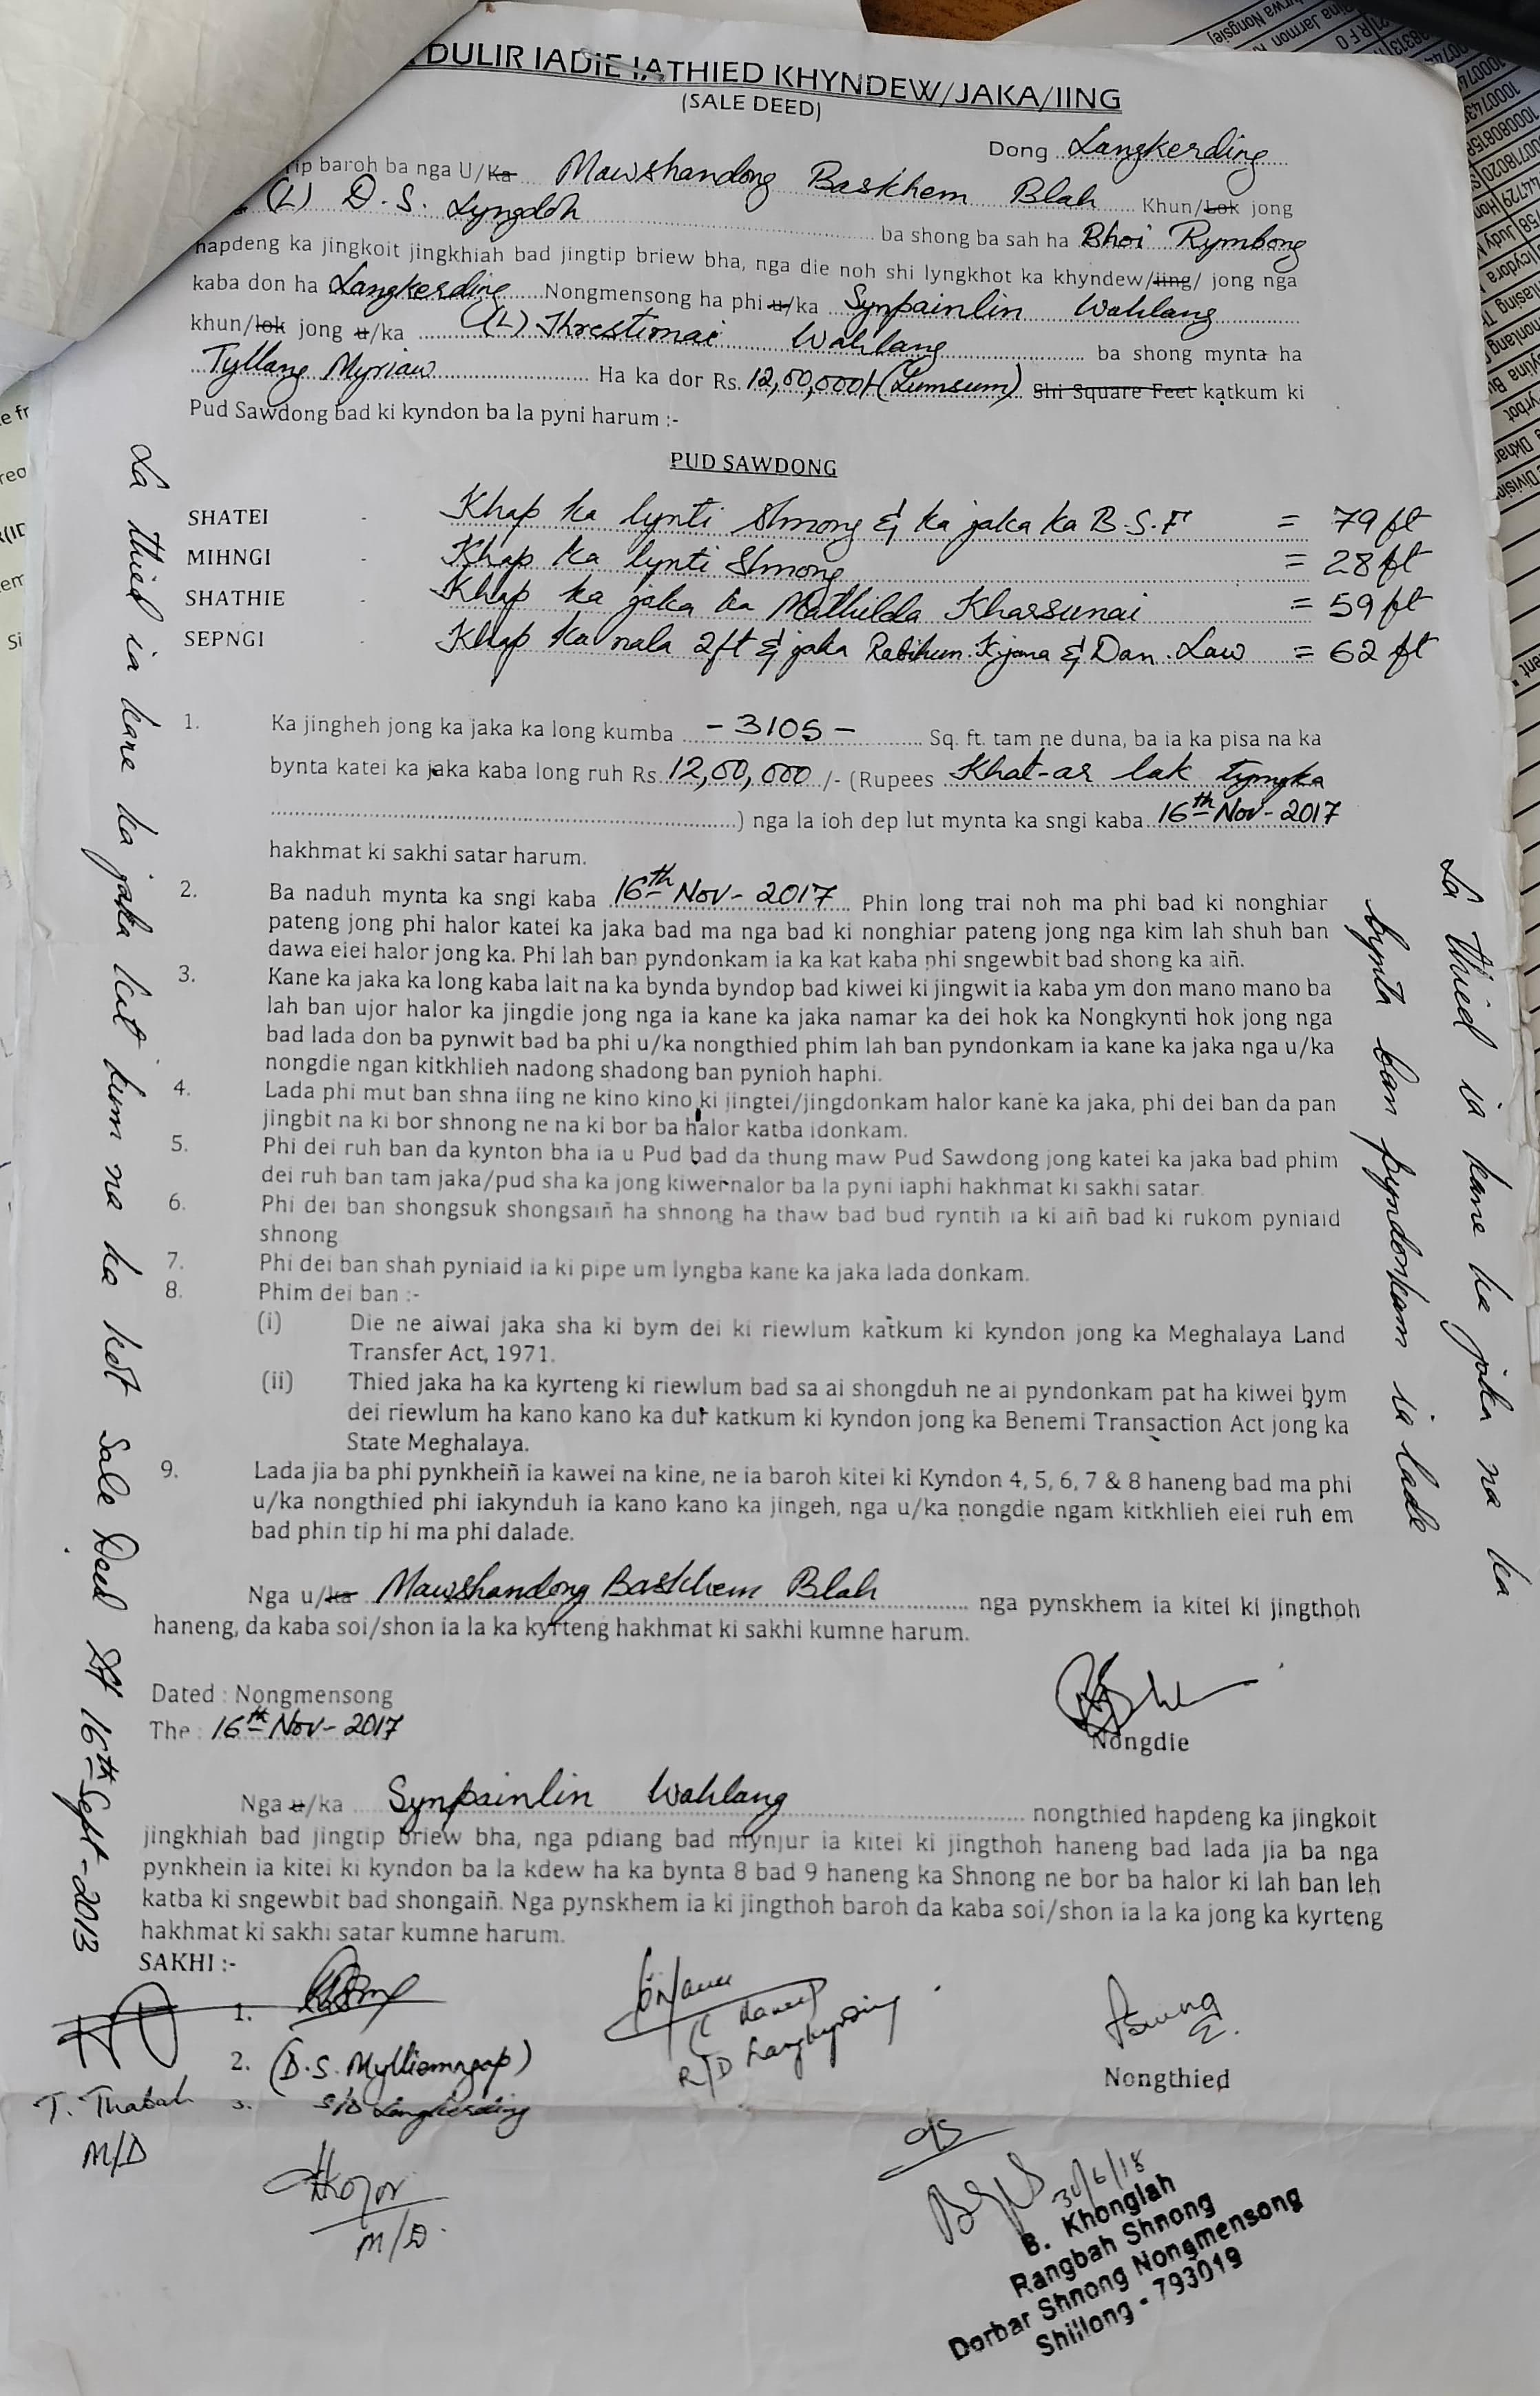 DULIR IADIE IATHIED KHYNDEW/JAKA/IING
(SALE DEED)
Dong Langkerding
tip baroh ba nga U/Ka Mawshandong Baskhem Blah Khun/Lok jong
(L) D.S. Lyngdoh ba shong ba sah ha Bhoi Rymbong
hapdeng ka jingkoit jingkhiah bad jingtip briew bha, nga die noh shi lyngkhot ka khyndew/iing/ jong nga
kaba don ha Langkerding Nongmensong ha phi u/ka Synpainlin Wahlang
khun/lok jong u/ka (L) Threstimai Wahlang ba shong mynta ha
Tyllang Myriaw Ha ka dor Rs. 12,00,000/- (Lumsum) Shi Square Feet katkum ki
Pud Sawdong bad ki kyndon ba la pyni harum :-
PUD SAWDONG
SHATEI - Khap ka lynti Shnong & ka jaka ka B.S.F = 79 ft
MIHNGI - Khap ka lynti Shnong = 28 ft
SHATHIE - Khap ka jaka ka Mathilda Kharsunai = 59 ft
SEPNGI - Khap ka nala 2ft & jaka Rabikun. Kjama & Dan. Law = 62 ft
1. Ka jingheh jong ka jaka ka long kumba - 3105 - Sq. ft. tam ne duna, ba ia ka pisa na ka
bynta katei ka jaka kaba long ruh Rs. 12,00,000 /- (Rupees Khat-ar lak tyngka
) nga la ioh dep lut mynta ka sngi kaba 16th Nov- 2017
hakhmat ki sakhi satar harum.
2. Ba naduh mynta ka sngi kaba 16th Nov- 2017 Phin long trai noh ma phi bad ki nonghiar
pateng jong phi halor katei ka jaka bad ma nga bad ki nonghiar pateng jong nga kim lah shuh ban
dawa eiei halor jong ka. Phi lah ban pyndonkam ia ka kat kaba phi sngewbit bad shong ka aiñ.
3. Kane ka jaka ka long kaba lait na ka bynda byndop bad kiwei ki jingwit ia kaba ym don mano mano ba
lah ban ujor halor ka jingdie jong nga ia kane ka jaka namar ka dei hok ka Nongkynti hok jong nga
bad lada don ba pynwit bad ba phi u/ka nongthied phim lah ban pyndonkam ia kane ka jaka nga u/ka
nongdie ngan kitkhlieh nadong shadong ban pynioh haphi.
4. Lada phi mut ban shna iing ne kino kino ki jingtei/jingdonkam halor kane ka jaka, phi dei ban da pan
jingbit na ki bor shnong ne na ki bor ba halor katba idonkam.
5. Phi dei ruh ban da kynton bha ia u Pud bad da thung maw Pud Sawdong jong katei ka jaka bad phim
dei ruh ban tam jaka/pud sha ka jong kiwernalor ba la pyni iaphi hakhmat ki sakhi satar.
6. Phi dei ban shongsuk shongsaiñ ha shnong ha thaw bad bud ryntih ia ki aiñ bad ki rukom pyniaid
shnong
7. Phi dei ban shah pyniaid ia ki pipe um lyngba kane ka jaka lada donkam.
8. Phim dei ban :-
(i) Die ne aiwai jaka sha ki bym dei ki riewlum katkum ki kyndon jong ka Meghalaya Land
Transfer Act, 1971.
(ii) Thied jaka ha ka kyrteng ki riewlum bad sa ai shongduh ne ai pyndonkam pat ha kiwei bym
dei riewlum ha kano kano ka dur katkum ki kyndon jong ka Benemi Transaction Act jong ka
State Meghalaya.
9. Lada jia ba phi pynkheiñ ia kawei na kine, ne ia baroh kitei ki Kyndon 4, 5, 6, 7 & 8 haneng bad ma phi
u/ka nongthied phi iakynduh ia kano kano ka jingeh, nga u/ka nongdie ngam kitkhlieh eiei ruh em
bad phin tip hi ma phi dalade.
Nga u/ka Mawshandong Baskhem Blah nga pynskhem ia kitei ki jingthoh
haneng, da kaba soi/shon ia la ka kyrteng hakhmat ki sakhi kumne harum.
Dated : Nongmensong
The : 16th Nov- 2017
Nongdie
Nga u/ka Synpainlin Wahlang nongthied hapdeng ka jingkoit
jingkhiah bad jingtip briew bha, nga pdiang bad mynjur ia kitei ki jingthoh haneng bad lada jia ba nga
pynkhein ia kitei ki kyndon ba la kdew ha ka bynta 8 bad 9 haneng ka Shnong ne bor ba halor ki lah ban leh
katba ki sngewbit bad shongaiñ. Nga pynskhem ia ki jingthoh baroh da kaba soi/shon ia la ka jong ka kyrteng
hakhmat ki sakhi satar kumne harum.
SAKHI :-
1.
2. (D.S. Mylliemngap)
3. S/D Langkerding
T. Thabah
M/D
M/D.
R/D Langkyrding
Nongthied
30/6/18
B. Khonglah
Rangbah Shnong
Dorbar Shnong Nongmensong
Shillong - 793019
La thied ia kane ka jaka kat kum na ka kot Sale Deed Dt 16th Sept - 2013
La thied ia kane ka jaka na ka
bynta ban pyndonkam ia lade